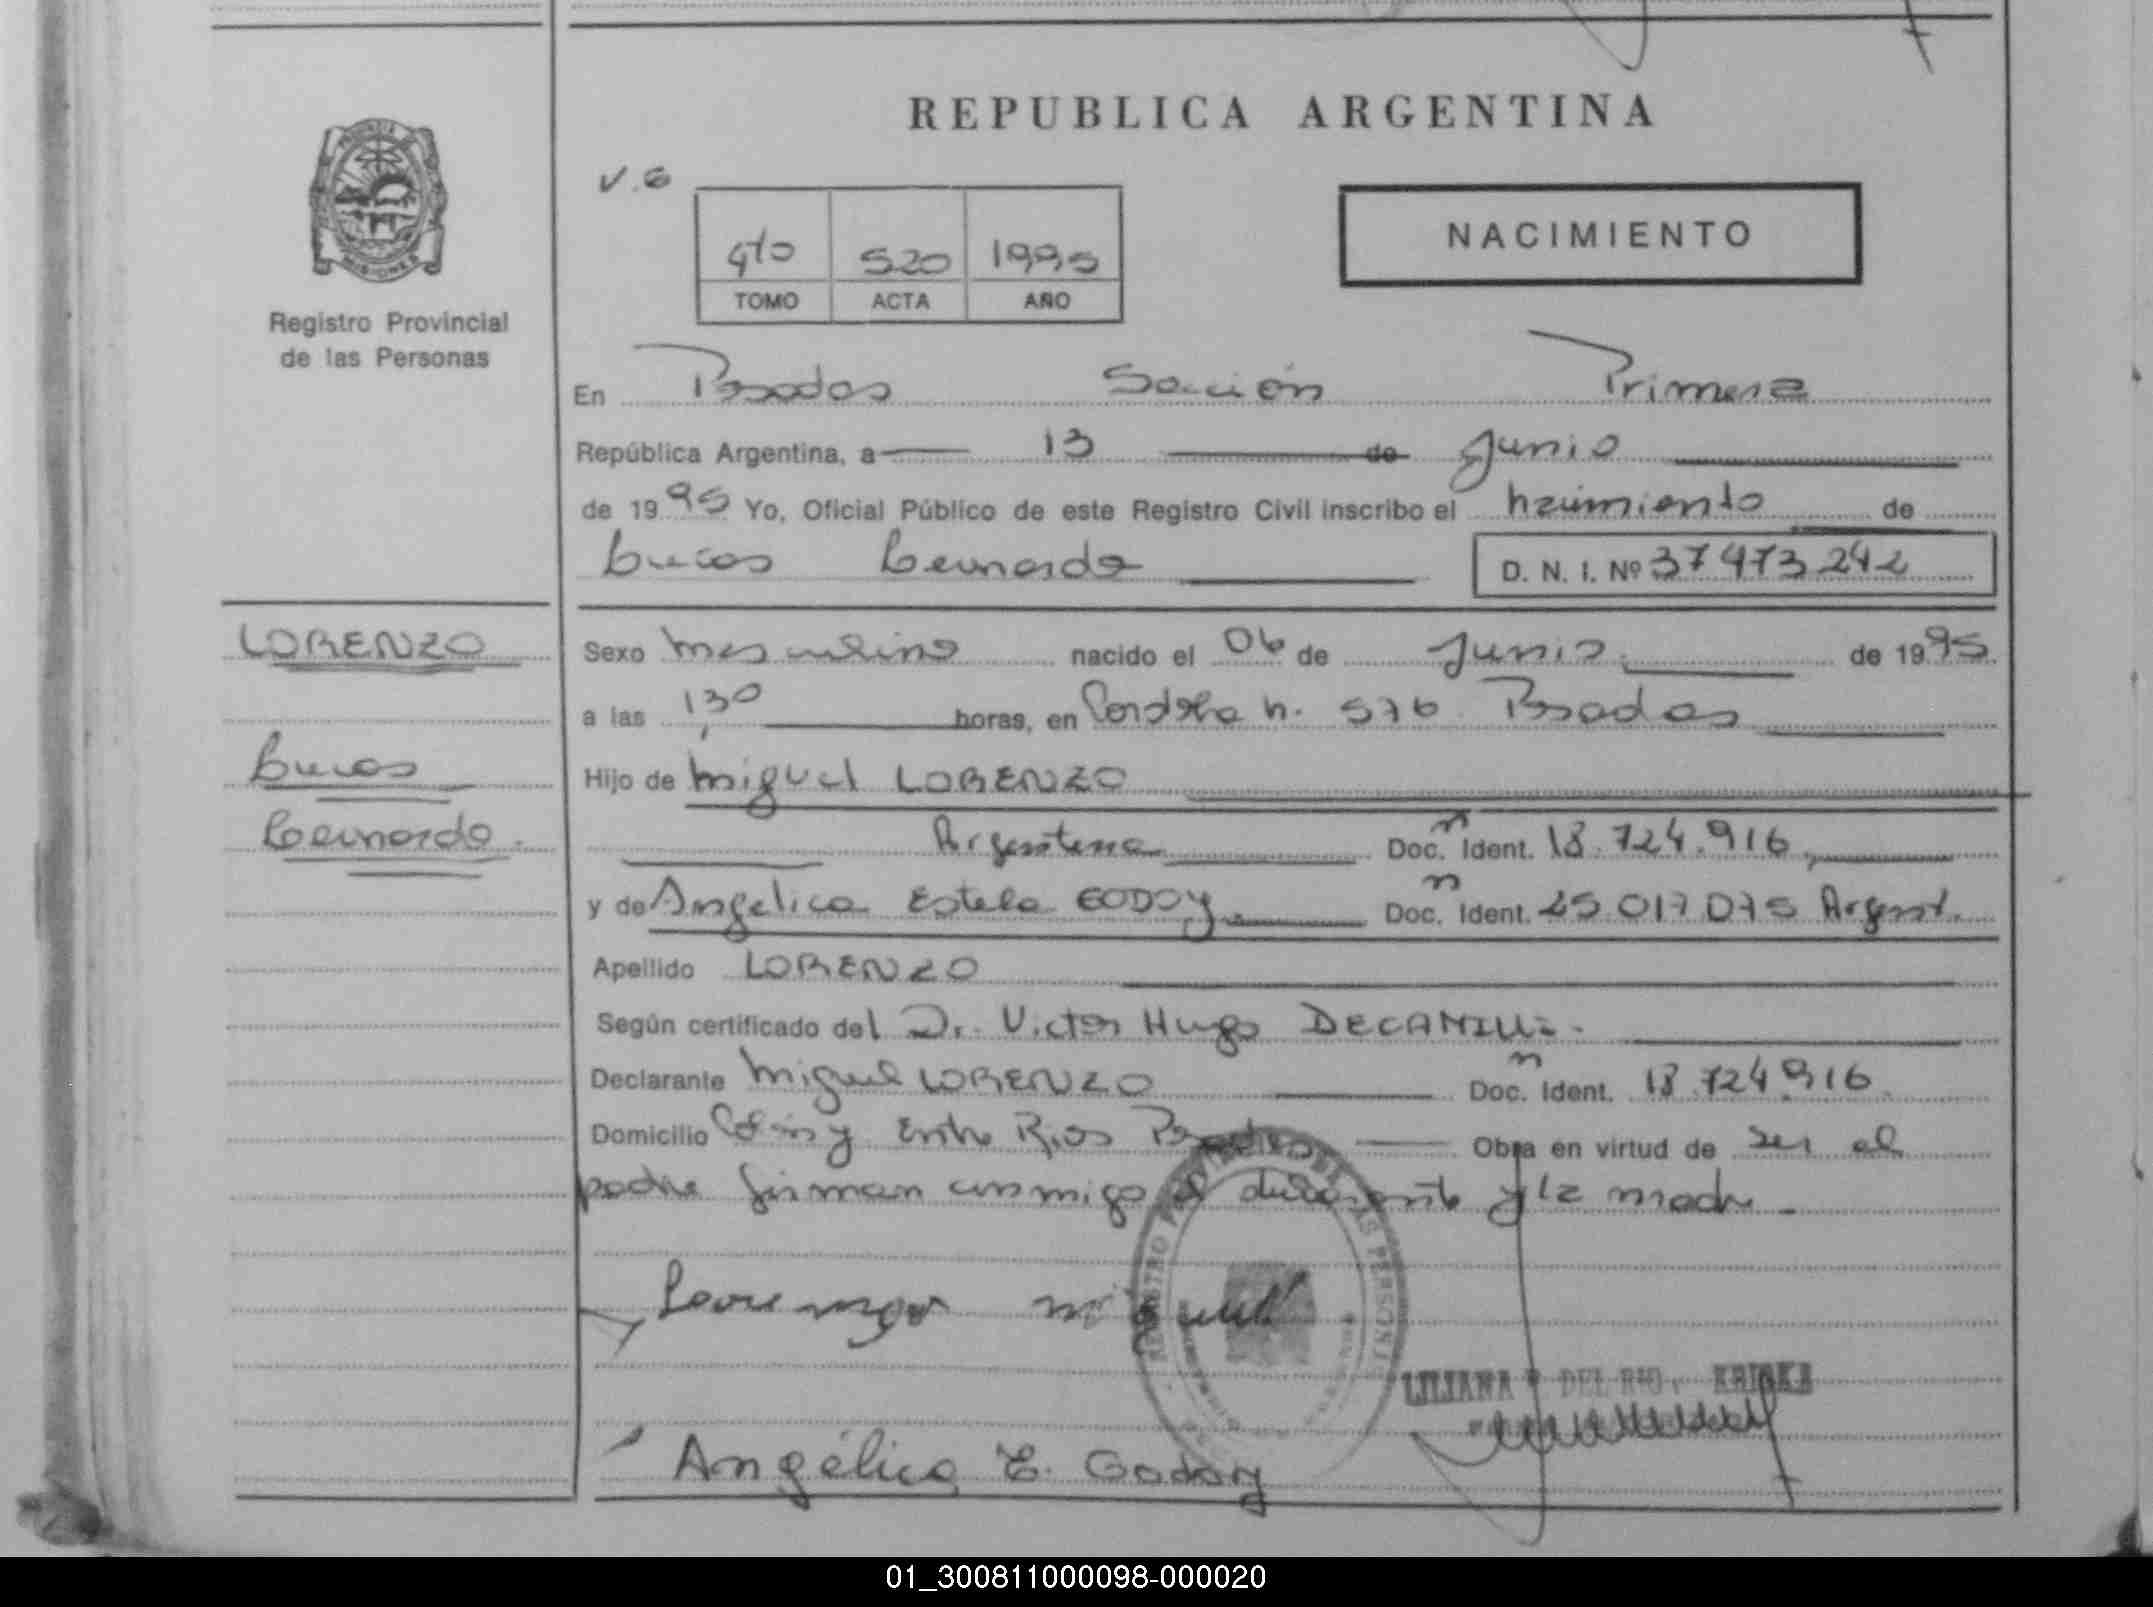 REPUBLICA ARGENTINA
MISIONES
Registro Provincial
de las Personas
V.G
4to 520 1995
TOMO ACTA AÑO
NACIMIENTO
En Posadas Sección Primera
República Argentina, a 13 de Junio
de 1995 Yo, Oficial Público de este Registro Civil inscribo el nacimiento de
Lucas Leonardo
D. N. I. Nº 37 473 242
LORENZO
Lucas
Leonardo.
Sexo masculino nacido el 06 de Junio de 1995
a las 1,30 horas, en Cordoba n. 576 Posadas
Hijo de Miguel LORENZO
Argentina Doc. n Ident. 18.724.916,
y de Angelica Estela GODOY Doc. n Ident. 25 017 075 Argent.
Apellido LORENZO
Según certificado del Dr. Victor Hugo
Declarante Miguel LORENZO Doc. n Ident. 18.724.916
Domicilio y Entre Rios Posadas Obra en virtud de ser el
padre firman conmigo el declarante y la madre
Miguel
LILIANA DEL RIO
Angélica E. Godoy
01_300811000098-000020